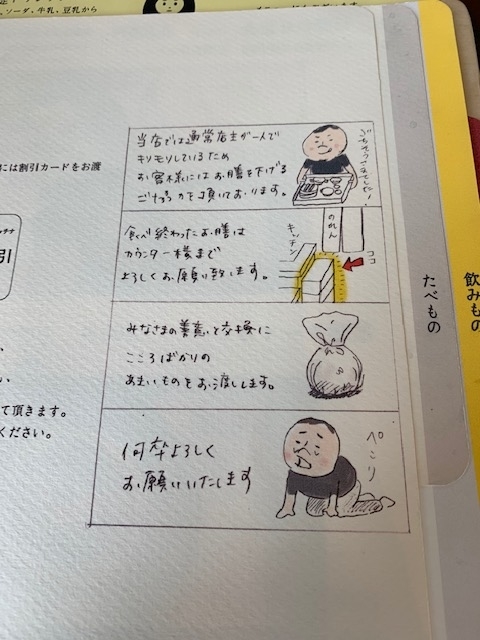 ソーダ、牛乳、豆乳から
には割引カードをお渡
引
て頂きます。
ください。
当店では通常店主が一人で
キリモリしているため
お客様にはお膳を下げる
ご協力を頂いております。
ごちそうさまでした!
食べ終わったお膳は
カウンター横まで
よろしくお願い致します。
のれん
キッチン
ココ
みなさまの善意と交換に
こころばかりの
あまいものをお渡しします。
何卒よろしく
お願いいたします
ぺこり
たべもの
飲みもの